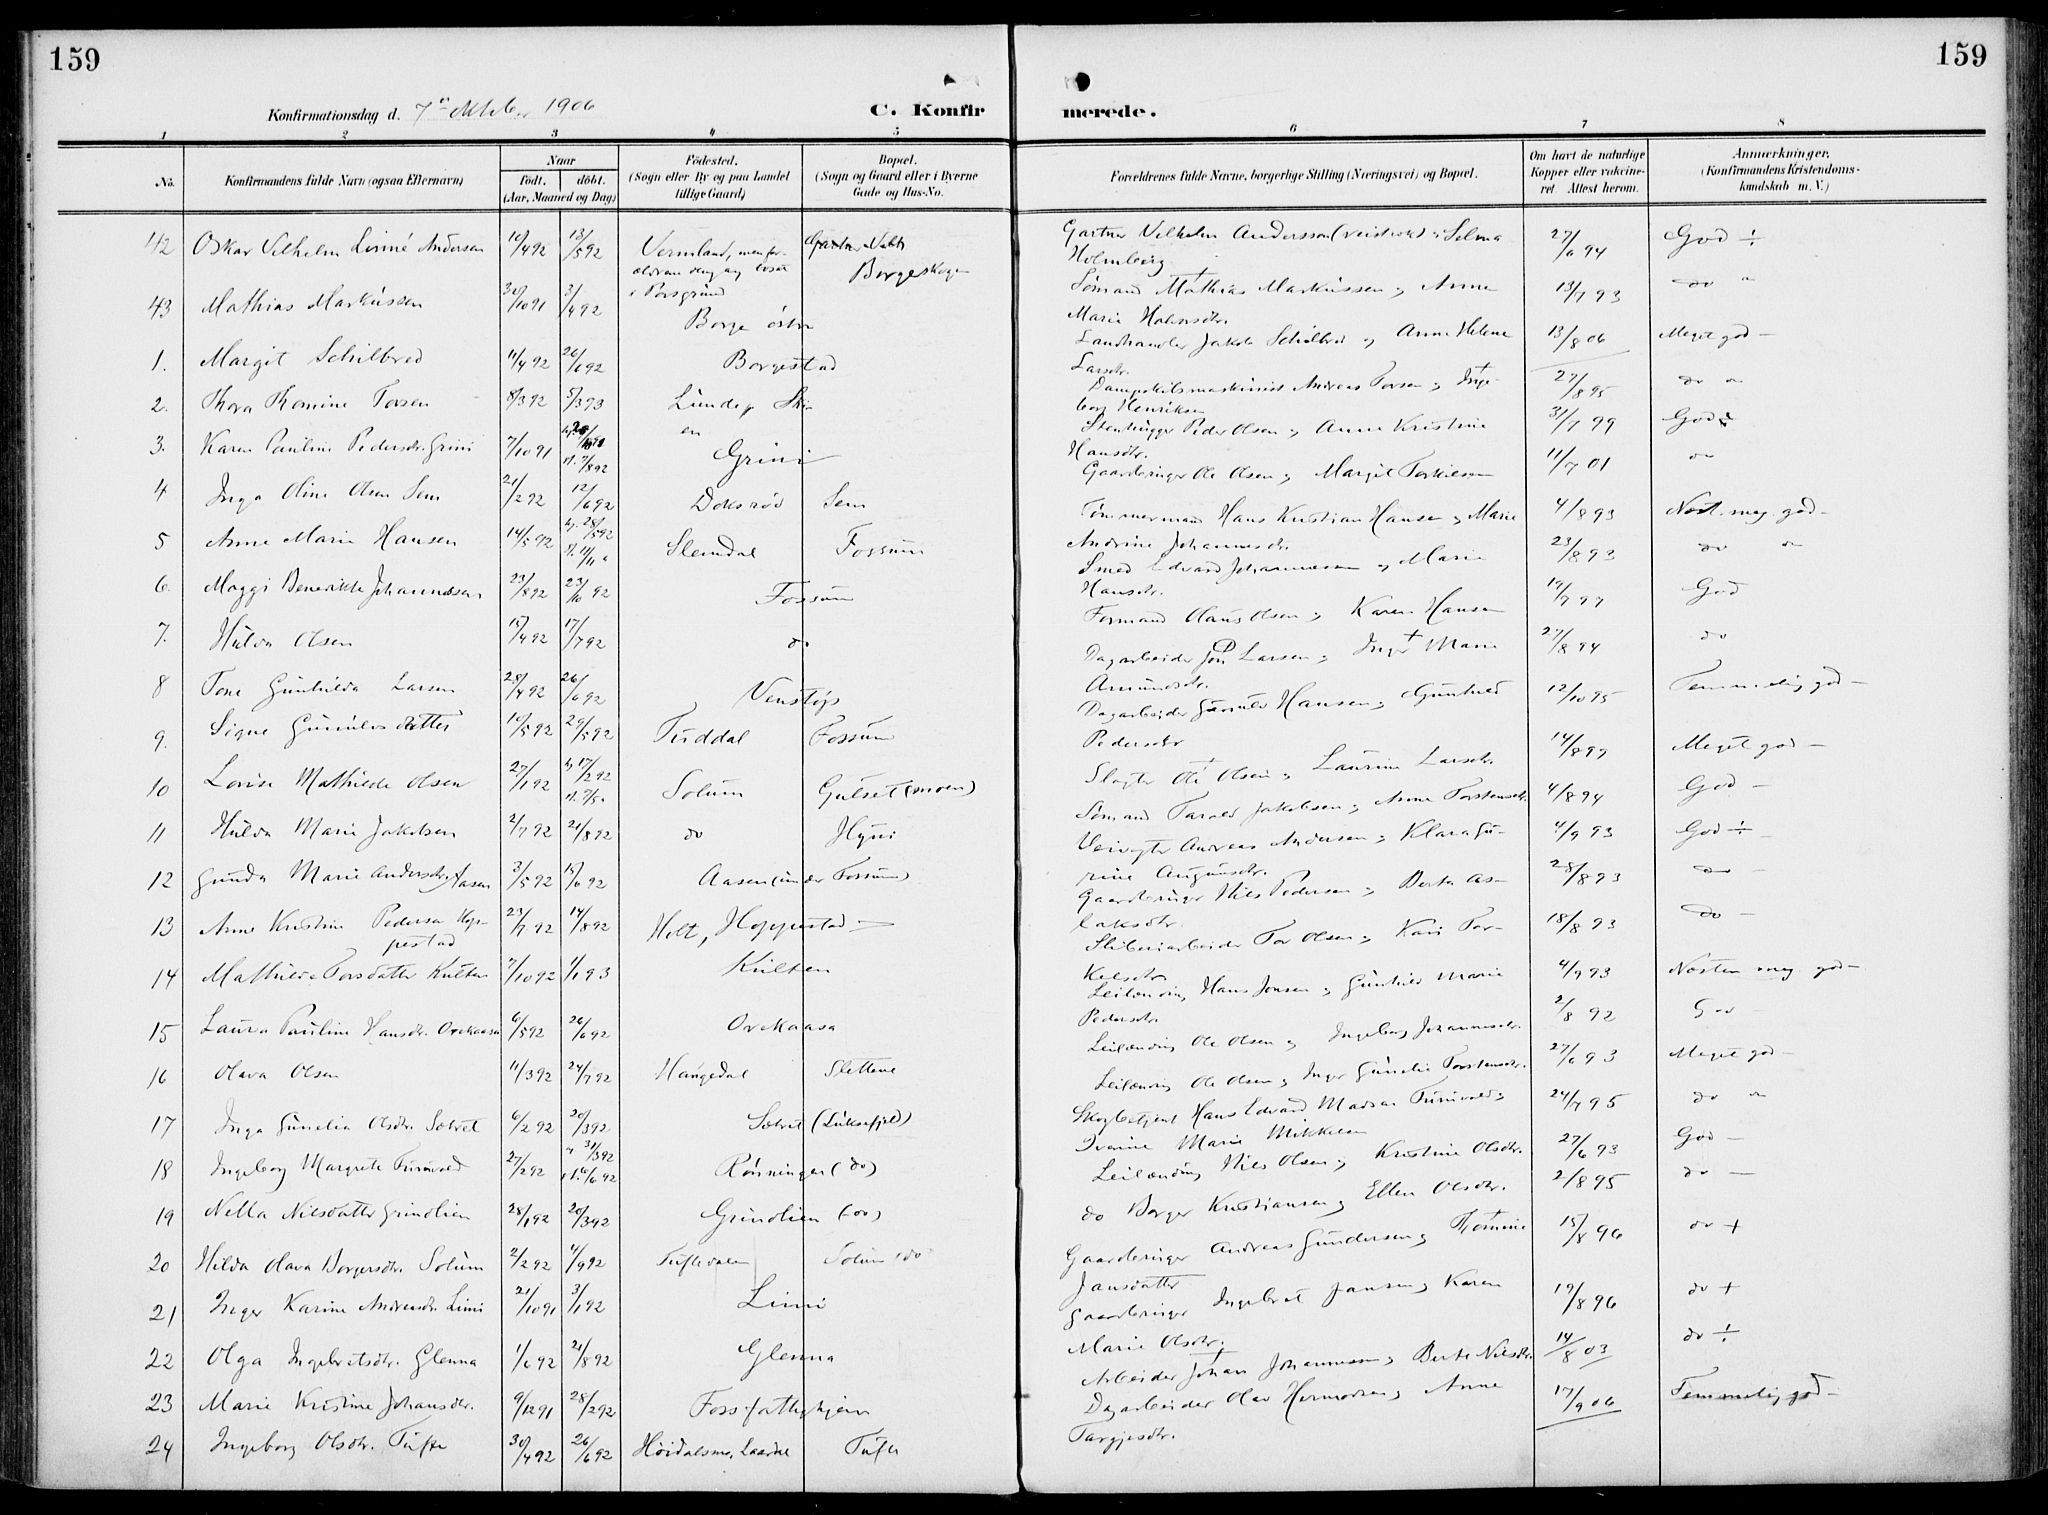 159
159
Konfirmationsdag d. 7de Oktober 1906
C. Konfir
merede.
1 2 3 4 5 6 7 8
No.
Konfirmandens fulde Navn (ogsaa Efternavn)
Naar
födt. döbt.
(Aar, Maaned og Dag)
Födested.
(Sogn eller By og paa Landet
tillige Gaard)
Bopæl.
(Sogn og Gaard eller i Byerne
Gade og Hus-No.
Forældrenes fulde Navne, borgerlige Stilling (Næringsvei) og Bopæl.
Om havt de naturlige
Kopper eller vakcine-
ret. Attest herom.
Anmærkninger.
(Konfirmandens Kristendoms-
kundskab m. V.)
42 Oskar Vilhelm Linné Andersen 10/4 92 13/5 92 Vermland, men for-
i Porsgrund Borgeskogen Gartner Vilhelm Andersson Selma
Holmberg 27/6 94 God ÷
43 Mathias Markussen 30/10 91 3/4 92 Borge östre Sömand Mathias Markussen og Anne
Marie Halvorsdtr. 13/7 93 do "
1. Margit Schilbred 11/4 92 26/6 92 Borgestad Landhandler Jakob Schilbred og Anne Helene
Larsdtr. 13/8 06 Meget god –
2. Thora Thomine Torsen 8/3 92 5/3 93 Lunde p. Skien Dampskibsmaskinist Andreas Torsen og Inge-
borg Henriksen 27/8 95 do "
3. Karen Pauline Pedersdtr. Grini 7/10 91 Grini Stenhugger Peder Olsen og Anne Kristine
Hansdtr. 31/7 99 God
4 Inga Oline Olsen Sem 21/2 92 12/6 92 Doksröd Sem Gaardbruger Ole Olsen og Margit Torkilsen 11/7 01 "
5 Anne Marie Hansen 14/5 92 hj. 28/5 92 Slemdal Fossum Tömmermand Hans Kristian Hansen og Marie
Andrine Johannesdtr. 4/8 93 Næst. meg. god –
6. Maggi Benedikte Johannesen 23/8 92 23/10 92 Fossum Smed Edvard Johannessen og Marie
Hansdtr. 23/8 93 do "
7. Hulda Olsen 15/4 92 17/7 92 do Formand Olaus Olsen og Karen Hansen 19/7 97 God
8 Tone Gunhilda Larsen 28/4 92 26/6 92 Venstöp Dagarbeider Jon Larsen og Inger Marie
Amundsdtr. 27/8 94 do
9. Signe Gunulvsdatter 10/5 92 29/5 92 Tuddal Fossum Dagarbeider Gunulv Hansen og Gunhild
Pedersdtr 12/10 95 Temmelig god –
10 Lovise Mathilde Olsen 27/1 92 hj. 17/2 92 Solum Gulset (moen) Slagter Ole Olsen og Laurine Larsdtr. 14/8 97 Meget god –
11 Hulda Marie Jakobsen 2/7 92 21/8 92 do Hyni Sömand Tarald Jakobsen og Anne Torstensdtr. 4/8 94 God –
12 Gunda Marie Andersdtr. Aasen 3/5 92 15/6 92 Aasen (under Fossum) Veivogter Andreas Andersen og Klara Gu-
rine 4/9 93 God ÷
13 Anne Kristine Pedersen Hop-
pestad 23/7 92 14/8 92 Holt, Hoppestad Gaardbruger Nils Pedersen og Berte As-
laksdtr. 28/8 93 do –
14 Mathilde Torsdatter Kulten 7/10 92 1/1 93 Kulten Sliberiarbeider Tor Olsen og Kari Tor-
kelsdtr 18/8 93 do –
15 Laura Pauline Hansdtr. Orekaasa 6/5 92 26/6 92 Orekaasa Leilænding Hans Jonsen og Gunhild Marie
Pedersdtr. 4/9 93 Næsten meg god –
16 Olava Olsen 11/3 92 24/7 92 Haugedal Slettene Leilænding Ole Olsen og Ingeborg Johannesdtr. 2/8 92 God
17 Inga Gunelia Olsdtr. Sætret 6/2 92 20/3 92 Sætret (Luksefjeld) Leilænding Ole Olsen og Inger Gunelie Torstensdtr. 27/6 93 Meget god –
18 Ingeborg Margrete Furuvald 27/2 92 31/3 92 Rönningen (do) Skogbetjent Hans Edvard Madsen Furuvald og
Ivarine Marie Mikkelsen 24/7 95 do "
19 Nella Nilsdatter Grindlien 28/1 92 20/3 92 Grindlien (do) Leilænding Nils Olsen og Kristine Olsdtr. 27/6 93 God –
20 Hilda Olava Borgersdtr. Solum 2/2 92 4/9 92 Tuftedalen Solum do do Borger Kristiansen og Ellen Olsdtr. 2/8 95 do –
21 Inger Karine Andreasdtr. Limi 21/10 91 3/1 92 Limi Gaardbruger Andreas Gundersen og Thomine
Jansdatter 15/8 96 do +
22 Olga Ingebretsdtr. Glenna 1/6 92 21/8 92 Glenna Gaardbruger Ingebret Jansen og Karen
Marie Olsdtr. 19/8 96 do +
23 Marie Kristine Johansdtr. 9/12 91 28/2 92 Foss fattighjem Arbeider Johan Johannessen og Berte Nilsdtr. 14/8 03 do ÷
24 Ingeborg Olsdtr. Tufte 30/4 92 26/6 92 Höidalsmo, Laardal Tufte Dagarbeider Olav Hermodsen og Anne
Targjesdtr. 17/9 06 Temmelig god –